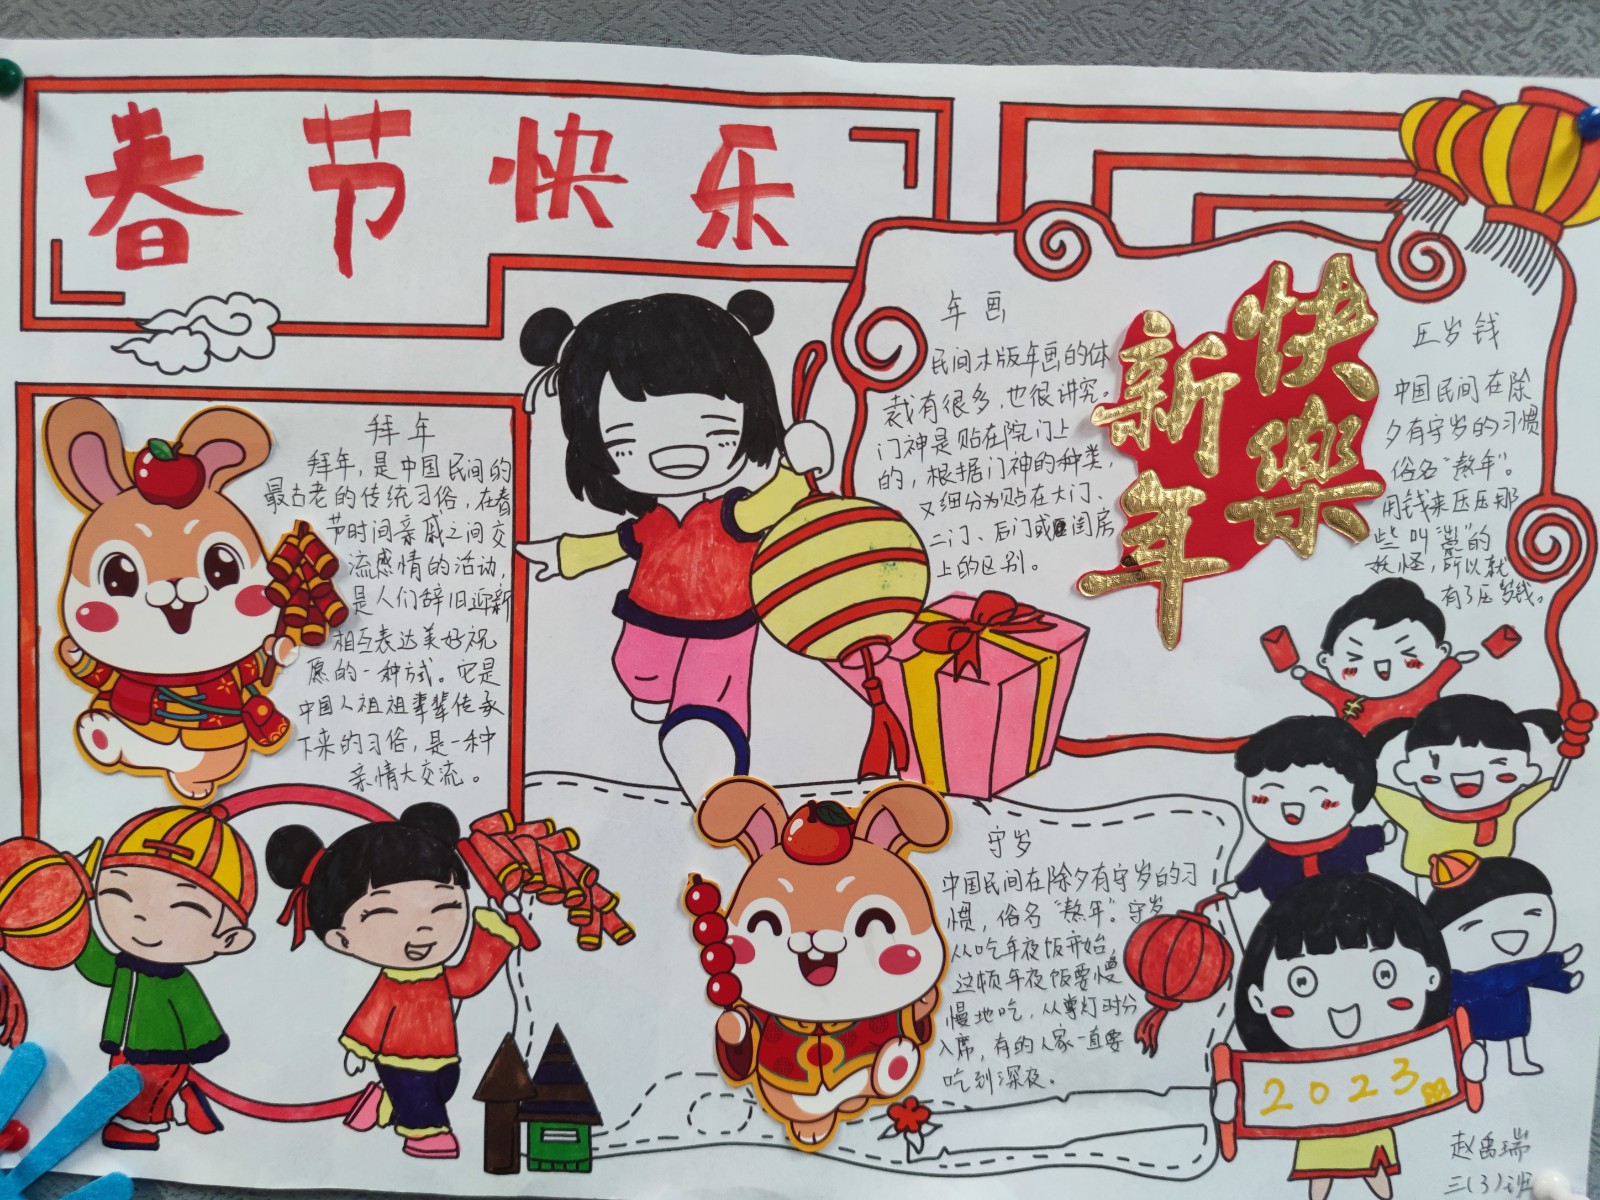 春节快乐
拜年
拜年，是中国民间的
最古老的传统习俗，在春
节时间亲戚之间交
流感情的活动，
是人们辞旧迎新
相互表达美好祝
愿的一种方式。它是
中国人祖祖辈辈传承
下来的习俗，是一种
亲情大交流。
年画
民间木版年画的体
裁有很多，也很讲究。
门神是贴在院门上
的，根据门神的种类，
又细分为贴在大门、
二门、后门或闺房
上的区别。
新年
快樂
压岁钱
中国民间在除
夕有守岁的习惯
俗名“熬年”。
用钱来压压那
些叫“祟”的
妖怪，所以就
有了压岁钱。
守岁
中国民间在除夕有守岁的习
惯，俗名“熬年”。守岁
从吃年夜饭开始，
这顿年夜饭要慢
慢地吃，从掌灯时分
入席，有的人家一直要
吃到深夜。
2023
赵禹瑞
三(3)班